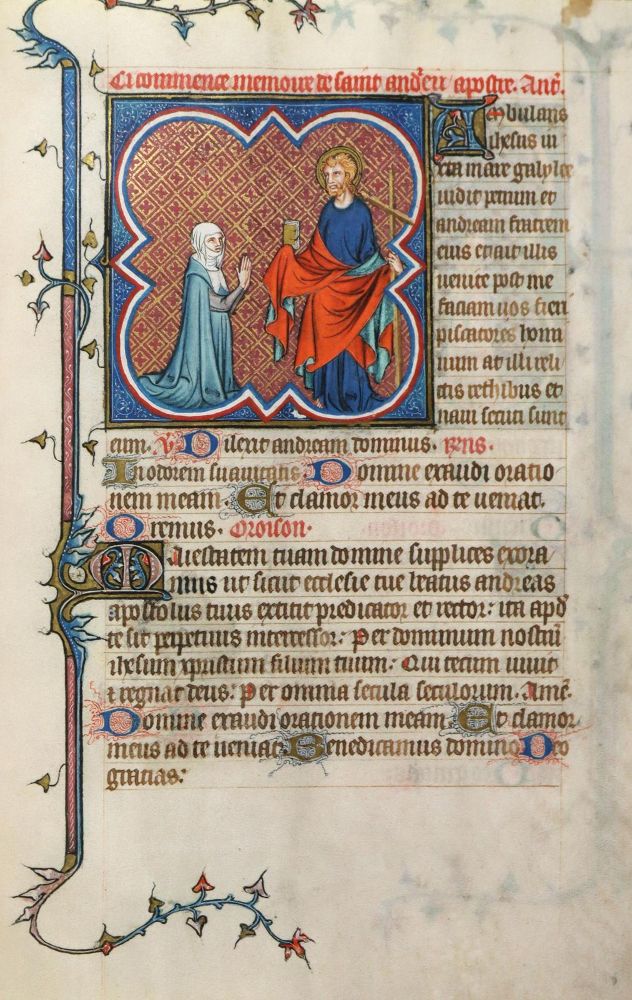 Ci commence memoire de saint andʼeu apostre. Antʼ.
Ambulans
ihesus iu
xta mare galylee
uidit petrum et
andream fratrem
eius et ait illis
uenite post me
faciam uos fieri
piscatores homi
num at illi reli
ctis rethibus et
naui secuti sunt
eum. V Dilexit andream dominus. Rens.
In odorem suauitatis Domine exaudi oratio
nem meam. Et clamor meus ad te ueniat.
Oremus. Oroison.
Maiestatem tuam domine supplices exora
mus ut sicut ecclesie tue beatus andreas
apostolus tuus extitit predicator et rector: ita apd
te sit perpetuus intercessor: Per dominum nostrū
ihesum xpristum filium tuum. Qui tecum uiuit
⁊ regnat deus. Per omnia secula seculorum. Amē.
Domine exaudi orationem meam. Et clamor
meus ad te ueniat. Benedicamus domino Deo
gracias: